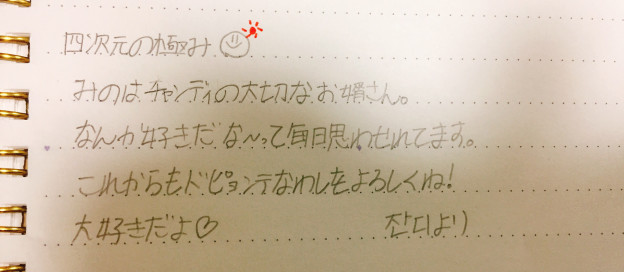 四次元の極み
みのはチャンディの大切なお婿さん。
なんか好きだな〜って毎日思わせれてます。
これからもドピョンテなわしをよろしくね!
大好きだよ♡ 잔디より